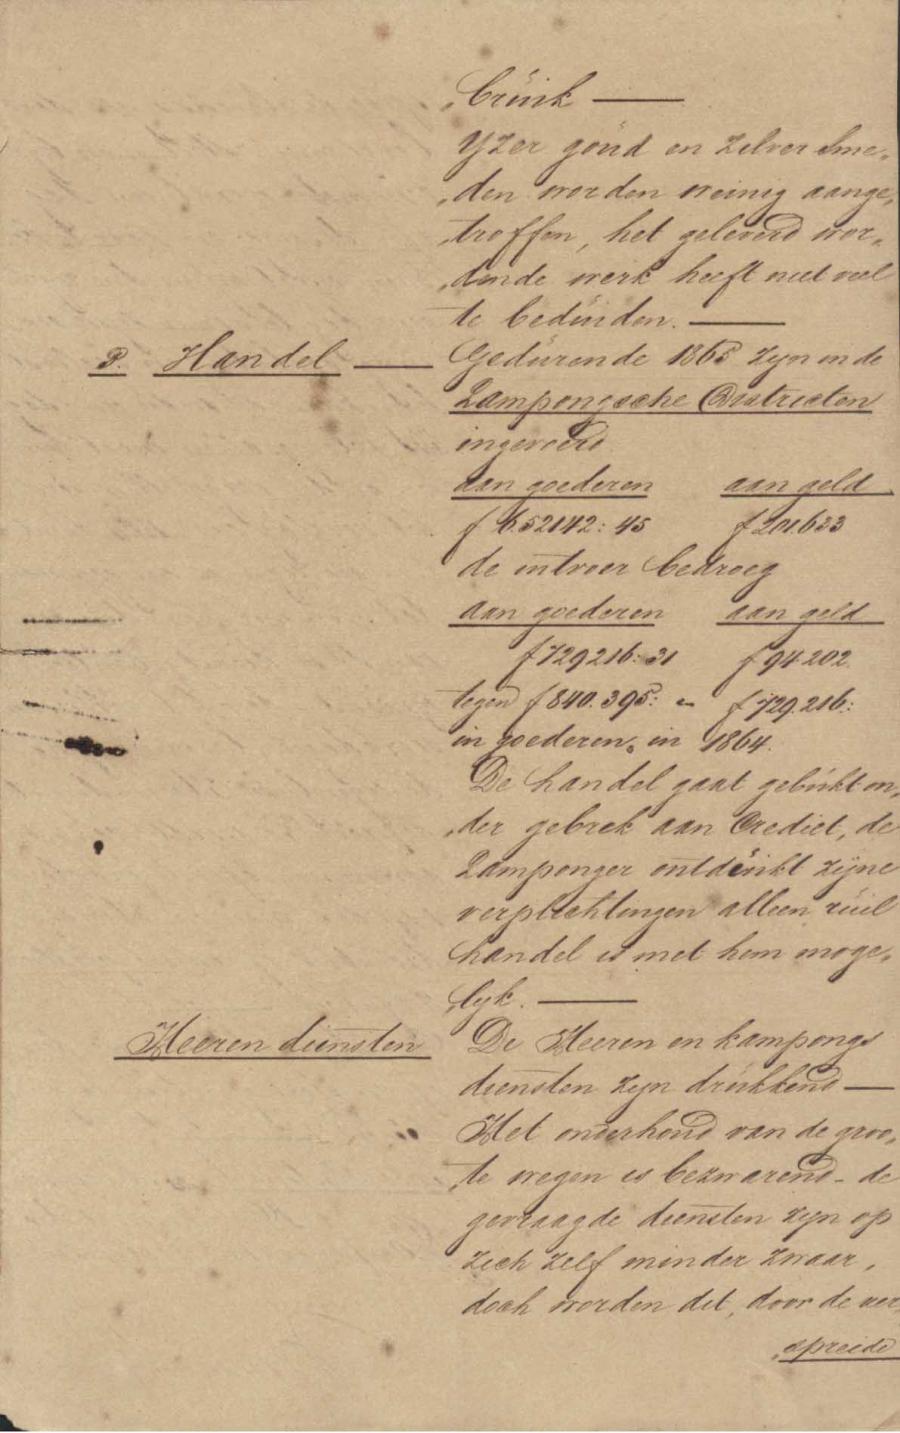 „bruik —
Yzer goud en zilver sme„
„den worden weinig aange„
„troffen, het geleverd wor„
„dende werk heeft niet veel
te beduiden. —
P. Handel — Gedurende 1865 zyn in de
Lampongsche Districten
ingevoerd
aan goederen aan geld
f 652142:45 f 201.633
de uitvoer bedroeg
aan goederen aan geld
f 729216:31 f 94.202
tegen f 840.395: „ f 729.216:
in goederen„ in 1864.
De handel gaat gebukt on„
„der gebrek aan Crediet, de
Lamponger ontduikt zijne
verplichtingen alleen ruil
handel is met hem moge„
„lyk. —
Heeren diensten De Heeren en kampongs
diensten zyn drukkend —
Het onderhoud van de groo„
„te wegen is bezwarend - de
gevraagde diensten zyn op
zich zelf minder zwaar,
doch worden dit, door de ver
„spreide